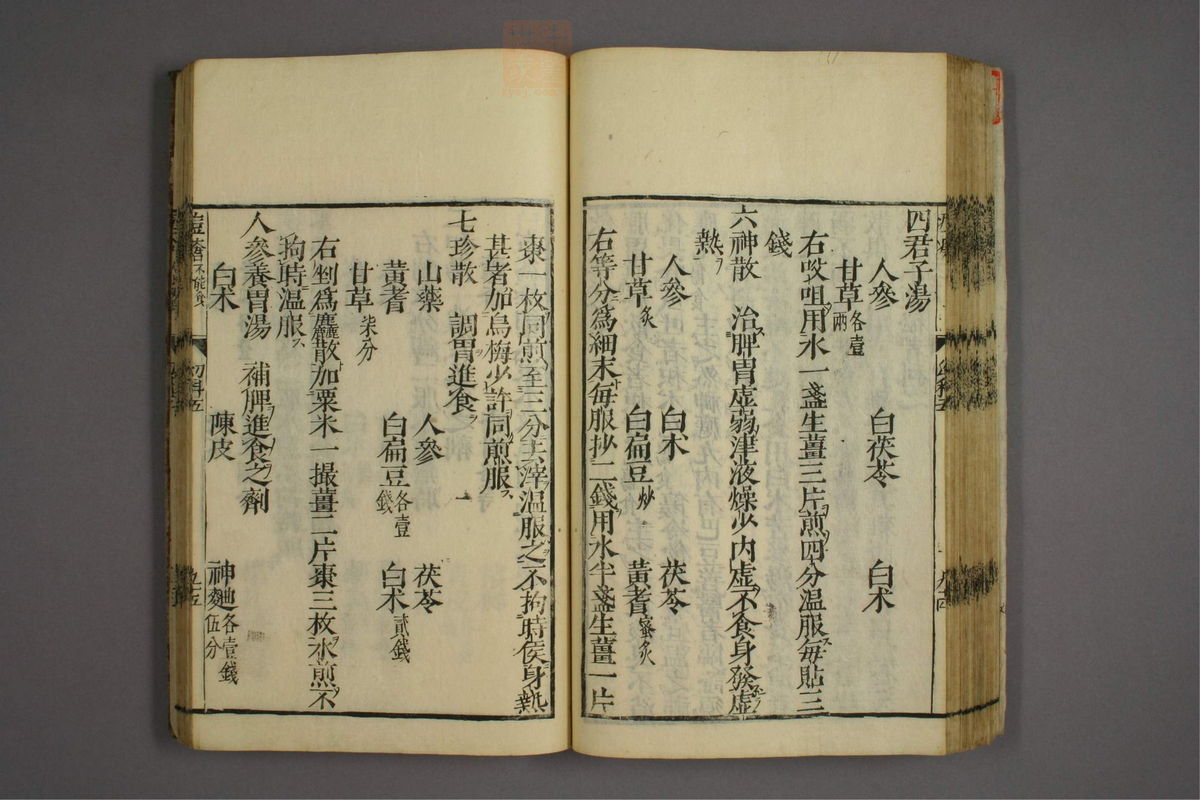 四君子湯
人參 白茯苓 白朮
甘草各壹兩
右㕮咀用水一盞生薑三片煎四分溫服每貼三
錢
六神散 治脾胃虛弱津液燥少内虛不食身發虛
熱
人參 白朮 茯苓
甘草炙 白扁豆炒 黃耆蜜炙
右等分爲細末每服抄二錢用水半盞生薑一片
棗一枚同煎至三分去滓溫服之不拘時侯身熱
甚者加烏梅少許同煎服
七珍散 調胃進食
山藥 人參 茯苓
黃耆 白扁豆各壹錢 白朮貳錢
甘草柒分
右剉爲麤散加粟米一撮薑二片棗三枚水煎不
拘時溫服
人參養胃湯 補脾進食之劑
白朮 陳皮 神麯各壹錢伍分